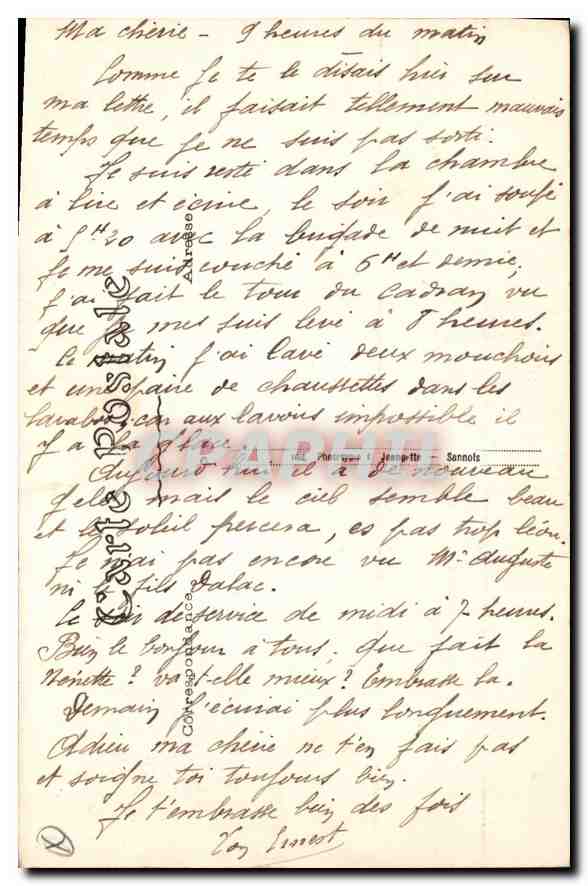 Ma chérie - 9 heures du matin
Comme je te le disais hier sur
ma lettre, il faisait tellement mauvais
temps que je ne suis pas sorti.
Je suis resté dans la chambre
à lire et écrire, le soir j'ai soupé
à 5H20 avec la brigade de nuit et
je me suis couché à 6H et demie,
j'ai fait le tour du cadran vu
que je mes suis levé à 8 heures.
Ce matin j'ai lavé deux mouchoirs
et une paire de chaussettes dans les
lavabos car aux lavoirs impossible il
y a la glace.
Aujourd'hui il a de nouveau
gelé mais le ciel semble beau
et le soleil percera, es pas trop
Je n'ai pas encore vu Mr Auguste
ni fils Dalac.
Ce soir de service de midi à 7 heures.
Bien le bonjour à tous. Que fait la
Nénette? va-t-elle mieux? Embrasse la.
Demain j'écrirai plus longuement.
Adieu ma chérie ne t'en fais pas
et soigne toi toujours bien.
Je t'embrasse bien des fois
Ton Ernest
Carte postale
Correspondance
Adresse
Jeannette - Sannois